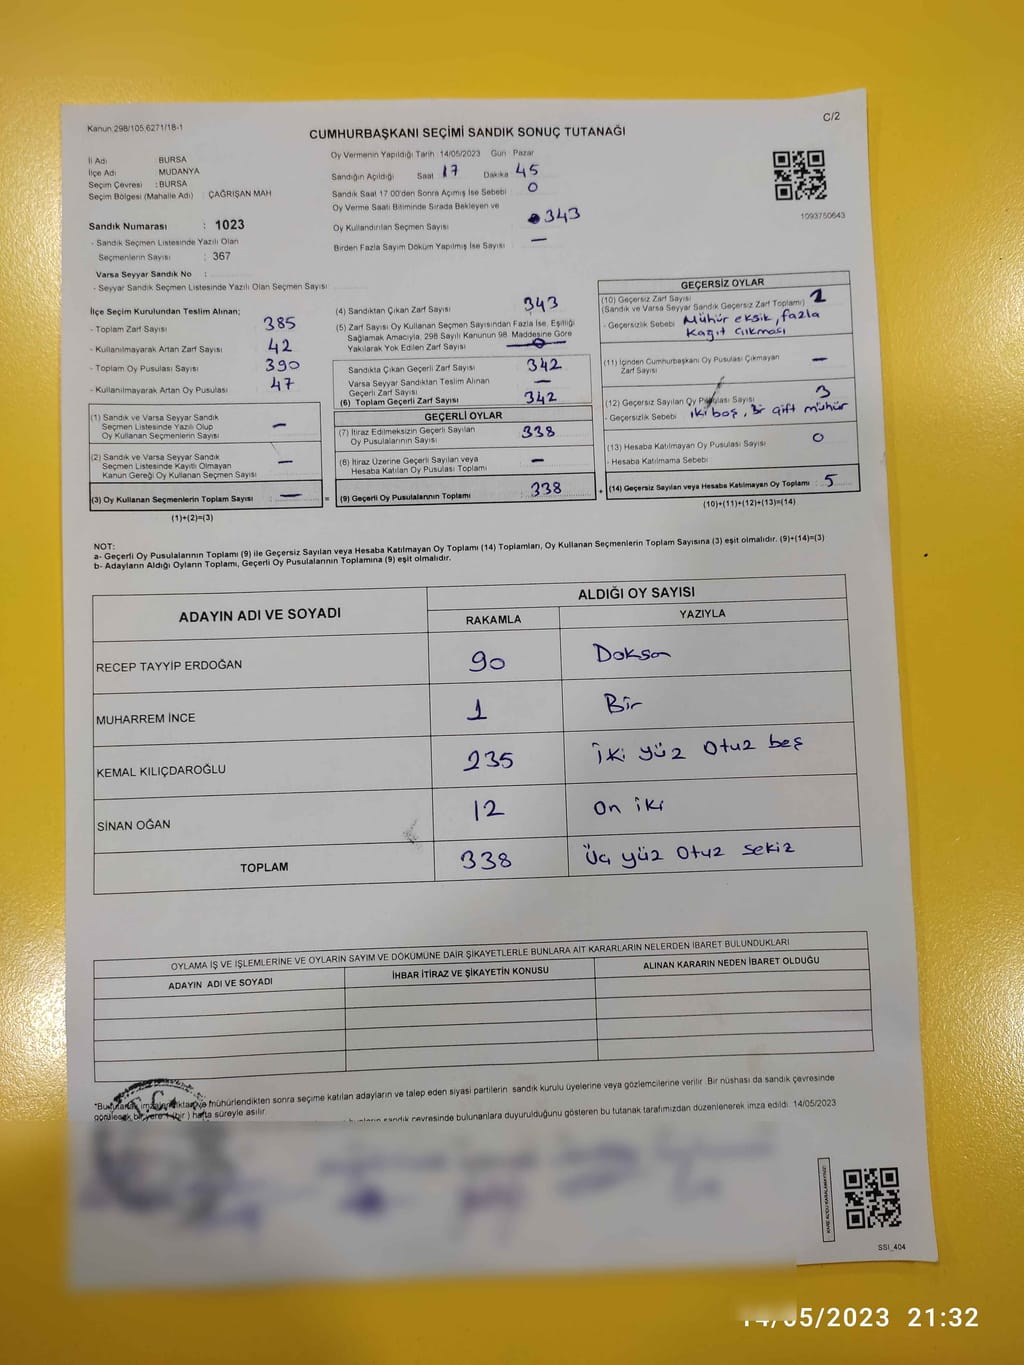 Kanun 298/105,6271/18-1
C/2
CUMHURBAŞKANI SEÇİMİ SANDIK SONUÇ TUTANAĞI
İl Adı BURSA
İlçe Adı MUDANYA
Seçim Çevresi : BURSA
Seçim Bölgesi (Mahalle Adı) : ÇAĞRIŞAN MAH
Oy Vermenin Yapıldığı Tarih 14/05/2023 Gün Pazar
Sandığın Açıldığı Saat 17 Dakika 45
Sandık Saat 17:00'den Sonra Açımış İse Sebebi 0
Oy Verme Saati Bitiminde Sırada Bekleyen ve
Oy Kullandırılan Seçmen Sayısı 343
Birden Fazla Sayım Döküm Yapılmış İse Sayısı —
1093750643
Sandık Numarası : 1023
- Sandık Seçmen Listesinde Yazılı Olan
Seçmenlerin Sayısı : 367
Varsa Seyyar Sandık No :
- Seyyar Sandık Seçmen Listesinde Yazılı Olan Seçmen Sayısı
İlçe Seçim Kurulundan Teslim Alınan;
- Toplam Zarf Sayısı 385
- Kullanılmayarak Artan Zarf Sayısı 42
- Toplam Oy Pusulası Sayısı 390
- Kullanılmayarak Artan Oy Pusulası 47
(1) Sandık ve Varsa Seyyar Sandık
Seçmen Listesinde Yazılı Olup
Oy Kullanan Seçmenlerin Sayısı —
(2) Sandık ve Varsa Seyyar Sandık
Seçmen Listesinde Kayıtlı Olmayan
Kanun Gereği Oy Kullanan Seçmen Sayısı —
(3) Oy Kullanan Seçmenlerin Toplam Sayısı : —
(1)+(2)=(3)
(4) Sandıktan Çıkan Zarf Sayısı 343
(5) Zarf Sayısı Oy Kullanan Seçmen Sayısından Fazla İse, Eşitliği
Sağlamak Amacıyla, 298 Sayılı Kanunun 98. Maddesine Göre
Yakılarak Yok Edilen Zarf Sayısı
Sandıkta Çıkan Geçerli Zarf Sayısı 342
Varsa Seyyar Sandıktan Teslim Alınan
Geçerli Zarf Sayısı —
(6) Toplam Geçerli Zarf Sayısı 342
GEÇERLİ OYLAR
(7) İtiraz Edilmeksizin Geçerli Sayılan
Oy Pusulalarının Sayısı 338
(8) İtiraz Üzerine Geçerli Sayılan veya
Hesaba Katılan Oy Pusulası Toplamı —
= (9) Geçerli Oy Pusulalarının Toplamı : 338
GEÇERSİZ OYLAR
(10) Geçersiz Zarf Sayısı
(Sandık ve Varsa Seyyar Sandık Geçersiz Zarf Toplamı)
- Geçersizlik Sebebi Mühür eksik, fazla
Kağıt Çıkması
(11) İçinden Cumhurbaşkanı Oy Pusulası Çıkmayan
Zarf Sayısı —
(12) Geçersiz Sayılan Oy Pusulası Sayısı 3
- Geçersizlik Sebebi iki boş, bir çift mühür
(13) Hesaba Katılmayan Oy Pusulası Sayısı 0
- Hesaba Katılmama Sebebi
+ (14) Geçersiz Sayılan veya Hesaba Katılmayan Oy Toplamı : 5
(10)+(11)+(12)+(13)=(14)
NOT:
a- Geçerli Oy Pusulalarının Toplamı (9) ile Geçersiz Sayılan veya Hesaba Katılmayan Oy Toplamı (14) Toplamları, Oy Kullanan Seçmenlerin Toplam Sayısına (3) eşit olmalıdır. (9)+(14)=(3)
b- Adayların Aldığı Oyların Toplamı, Geçerli Oy Pusulalarının Toplamına (9) eşit olmalıdır.
ADAYIN ADI VE SOYADI
ALDIĞI OY SAYISI
RAKAMLA YAZIYLA
RECEP TAYYİP ERDOĞAN 90 Doksan
MUHARREM İNCE 1 Bir
KEMAL KILIÇDAROĞLU 235 İki yüz Otuz beş
SİNAN OĞAN 12 On iki
TOPLAM 338 Üç yüz Otuz sekiz
OYLAMA İŞ VE İŞLEMLERİNE VE OYLARIN SAYIM VE DÖKÜMÜNE DAİR ŞİKAYETLERLE BUNLARA AİT KARARLARIN NELERDEN İBARET BULUNDUKLARI
ADAYIN ADI VE SOYADI İHBAR İTİRAZ VE ŞİKAYETİN KONUSU ALINAN KARARIN NEDEN İBARET OLDUĞU
mühürlendikten sonra seçime katılan adayların ve talep eden siyasi partilerin sandık kurulu üyelerine veya gözlemcilerine verilir. Bir nüshası da sandık çevresinde
hafta süreyle asılır.
sandık çevresinde bulunanlara duyurulduğunu gösteren bu tutanak tarafımızdan düzenlenerek imza edildi. 14/05/2023
KARE KODU KARALAMAYINIZ!
SSI_404
14/05/2023 21:32